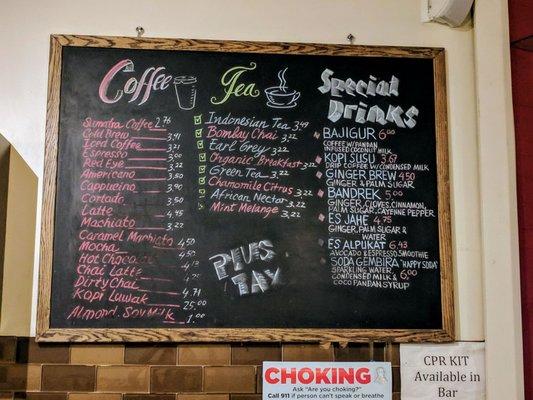 Coffee
Sumatra Coffee 2.76
Cold Brew 3.91
Iced Coffee 3.21
Espresso 3.00
Red Eye 3.22
Americano 3.80
Cappucino 3.90
Cortado 3.50
Latte 4.45
Machiato 3.22
Caramel Machiato 4.50
Mocha 4.50
Hot Chocolate
Chai Latte
Dirty Chai 4.71
Kopi Luwak 25.00
Almond, Soy Milk 1.00
Tea
Indonesian Tea 3.49
Bombay Chai 3.22
Earl Grey 3.22
Organic Breakfast 3.22
Green Tea 3.22
Chamomile Citrus 3.22
African Nectar 3.22
Mint Melange 3.22
PLUS
TAX
Special
Drinks
BAJIGUR 6.00
COFFEE W/PANDAN
INFUSED COCONUT MILK
KOPI SUSU 3.67
DRIP COFFEE W/CONDENSED MILK
GINGER BREW 4.50
GINGER & PALM SUGAR
BANDREK 5.00
GINGER, CLOVES, CINNAMON,
PALM SUGAR, CAYENNE PEPPER
ES JAHE 4.75
GINGER, PALM SUGAR &
WATER
ES ALPUKAT 6.43
AVOCADO & ESPRESSO SMOOTHIE
SODA GEMBIRA "HAPPY SODA"
SPARKLING WATER, 6.00
CONDENSED MILK &
COCO PANDAN SYRUP
CHOKING
Ask "Are you choking?"
if person can't speak or breathe
Call 911
CPR KIT
Available in
Bar